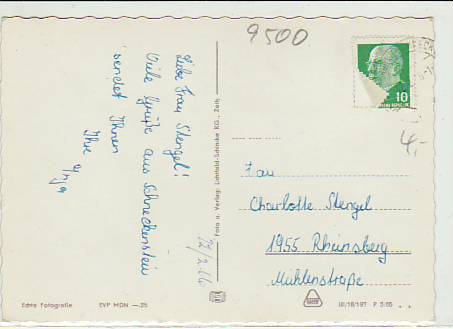 9500
10
4,-
Liebe Frau Stengel!
Viele Grüße aus Schneckenstein
sendet Ihnen
Ihre
Foto u. Verlag: Lichtbild-Schincke KG., Zeitz
Frau
Charlotte Stengel
1955 Rheinsberg
Mühlenstraße
Echte Fotografie
EVP MDN —,25
III/18/197 P 3/65